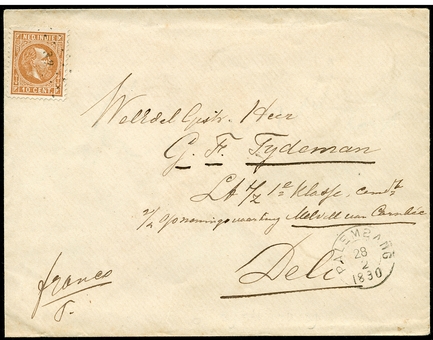 NED. INDIE
10 CENT.
WelEdel Gestr. Heer
G. F. Tydeman
Lt t/z 1e Klasse, comdt
Melvill van Carnbée
PALEMBANG
28
2
1880
Deli
franco